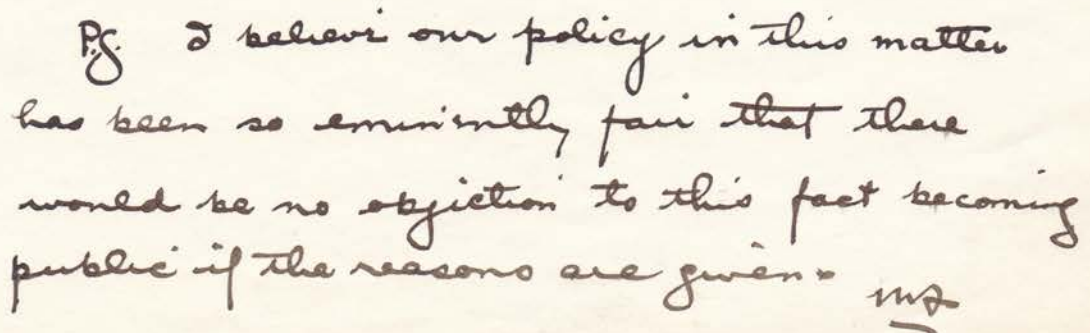 P.S. I believe our policy in this matter
has been so eminently fair that there
would be no objection to this fact becoming
public if the reasons are given.